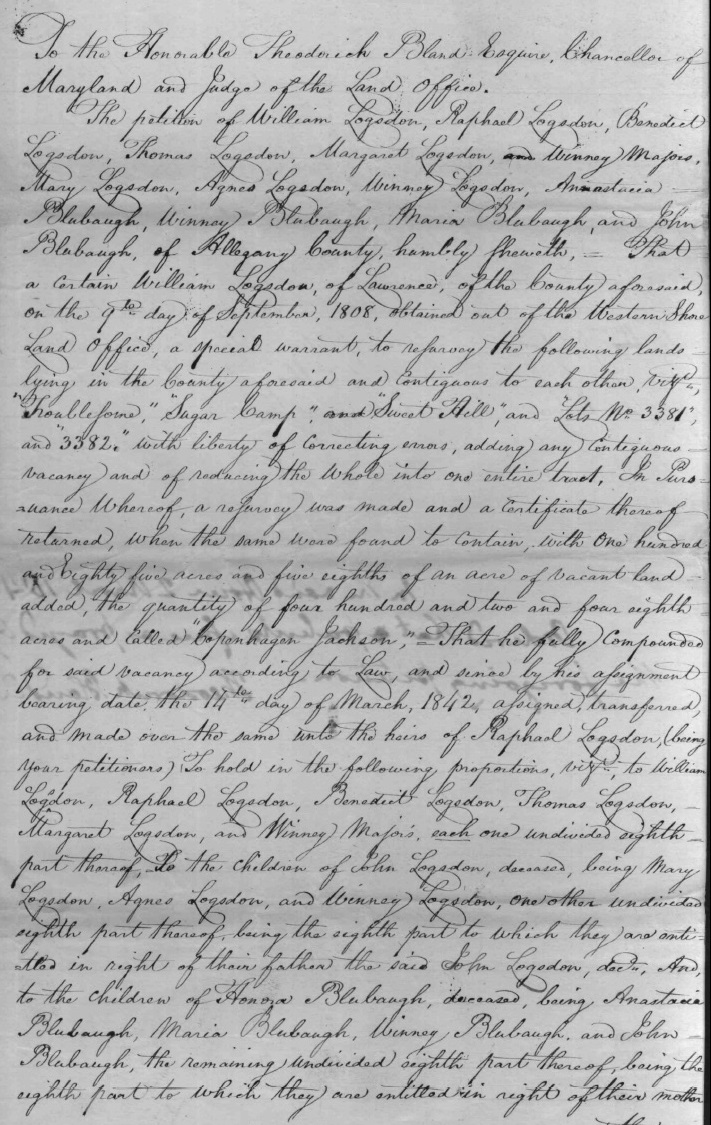 To the Honorable Theodorich Bland Esquire, Chancellor of
Maryland and Judge of the Land Office.
The petition of William Logsdon, Raphael Logsdon, Benedict
Logsdon, Thomas Logsdon, Margaret Logsdon, and Winney Majors,
Mary Logsdon, Agnes Logsdon, Winney Logsdon, Annastacia
Blubaugh, Winney Blubaugh, Maria Blubaugh, and John
Blubaugh, of Allegany County, humbly sheweth, = That
a certain William Logsdon, of Lawrence, of the County aforesaid,
on the 9th day of September, 1808, obtained out of the Western Shore
Land Office, a special warrant, to resurvey the following lands
lying in the County aforesaid and Contiguous to each other, vizt,
"Troublesome," "Sugar Camp", and "Sweet Hill", and "Lots No 3381",
and "3382," with liberty of Correcting errors, adding any Contiguous
vacancy and of reducing the whole into one entire tract, In Purs-
-uance Whereof, a resurvey was made and a Certificate thereof
returned, when the same were found to Contain, with One hundred
and Eighty five acres and five eighths of an acre of vacant land
added, the quantity of four hundred and two and four eighth
acres and Called "Copenhagen Jackson," = That he fully Compounded
for said vacancy according to Law, and since by his assignment
bearing date the 14th day of March, 1842, assigned, transferred
and made over the same unto the heirs of Raphael Logsdon, (being
your petitioners) To hold in the following proportions, vizt, to William
Logsdon, Raphael Logsdon, Benedict Logsdon, Thomas Logsdon,
Margaret Logsdon, and Winney Majors, each one undivided eighth
part thereof, To the Children of John Logsdon, deceased, being Mary
Logsdon, Agnes Logsdon, and Winney Logsdon, one other undivided
eighth part thereof, being the eighth part to which they are enti-
-tled in right of their father the said John Logsdon, decd, And,
to the Children of Honora Blubaugh, deceased, being Anastacia
Blubaugh, Maria Blubaugh, Winney Blubaugh, and John
Blubaugh, the remaining undivided eighth part thereof, being the
eighth part to which they are entitled in right of their mother